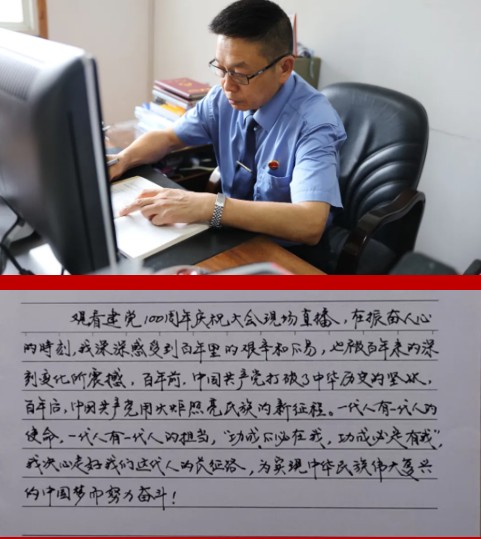 观看建党100周年庆祝大会现场直播，在振奋人心
的时刻，我深深感受到百年里的艰辛和不易，也被百年来的深
刻变化所震撼，百年前，中国共产党打破了中华历史的坚冰，
百年后，中国共产党用火炬照亮民族的新征程。一代人有一代人的
使命，一代人有一代人的担当，“功成不必在我，功成必定有我”，
我决心走好我们这代人的长征路，为实现中华民族伟大复兴
的中国梦而努力奋斗！